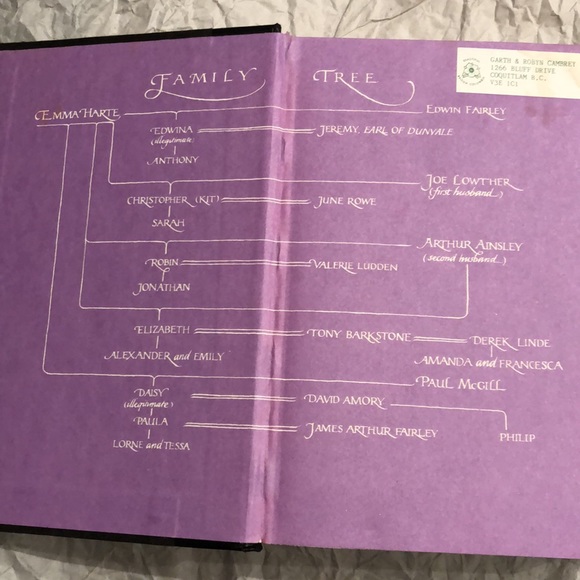 GARTH & ROBIN CAMBREY
1266 BLUFF DRIVE
COQUITLAM B.C.
V3E 1C1
FAMILY TREE
EMMA HARTE EDWIN FAIRLEY
EDWINA JEREMY, EARL OF DUNVALE
(illegitimate)
ANTHONY
JOE LOWTHER
(first husband)
CHRISTOPHER (KIT) JUNE ROWE
SARAH
ARTHUR AINSLEY
(second husband)
ROBIN VALERIE LUDDEN
JONATHAN
ELIZABETH TONY BARKSTONE DEREK LINDE
ALEXANDER and EMILY AMANDA and FRANCESCA
PAUL McGILL
DAISY DAVID AMORY
(illegitimate)
PAULA JAMES ARTHUR FAIRLEY PHILIP
LORNE and TESSA